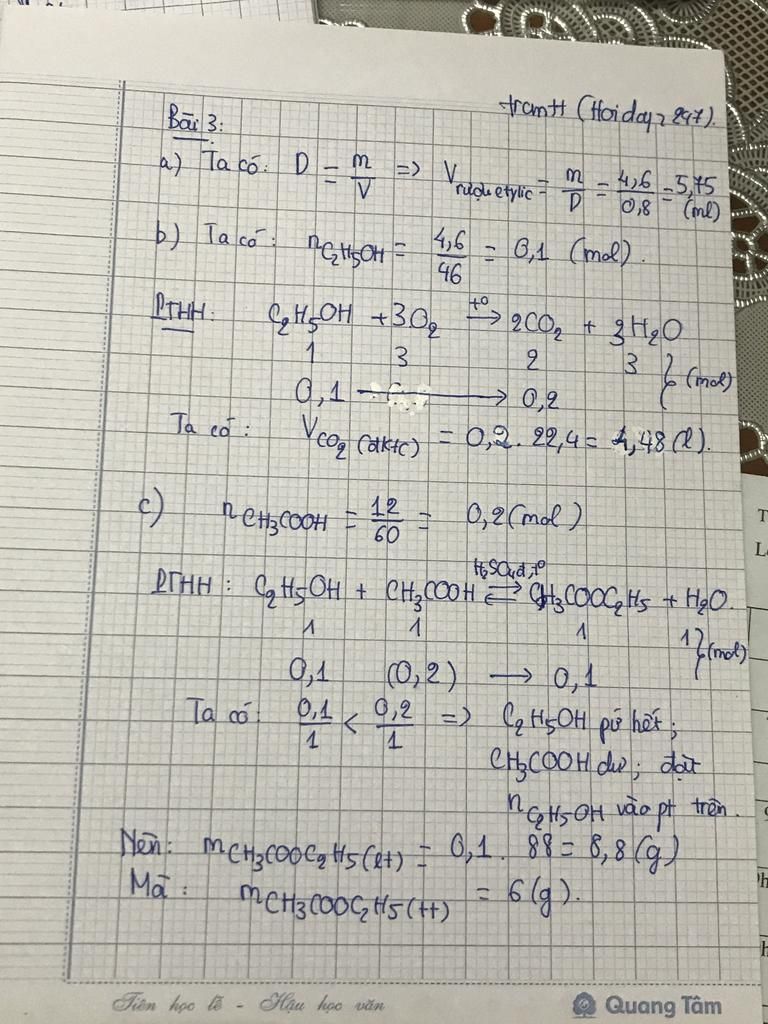 tramtt (Hoidap247).
Bài 3:
a) Ta có: D = m/V => V rượu etylic = m/D = 4,6/0,8 = 5,75 (ml)
b) Ta có: nC2H5OH = 4,6/46 = 0,1 (mol).
PTHH: C2H5OH + 3O2 →(t°) 2CO2 + 3H2O
1 3 2 3 } (mol)
0,1 → 0,2
Ta có: VCO2 (đktc) = 0,2. 22,4 = 4,48 (l).
c) nCH3COOH = 12/60 = 0,2 (mol)
PTHH: C2H5OH + CH3COOH ⇌(H2SO4đ,t°) CH3COOC2H5 + H2O.
1 1 1 1 } (mol)
0,1 (0,2) → 0,1
Ta có: 0,1/1 < 0,2/1 => C2H5OH pứ hết;
CH3COOH dư; đặt
nC2H5OH vào pt trên.
Nên: mCH3COOC2H5 (lt) = 0,1. 88 = 8,8 (g)
Mà: mCH3COOC2H5 (tt) = 6 (g).
Tiên học lễ - Hậu học văn
Quang Tâm